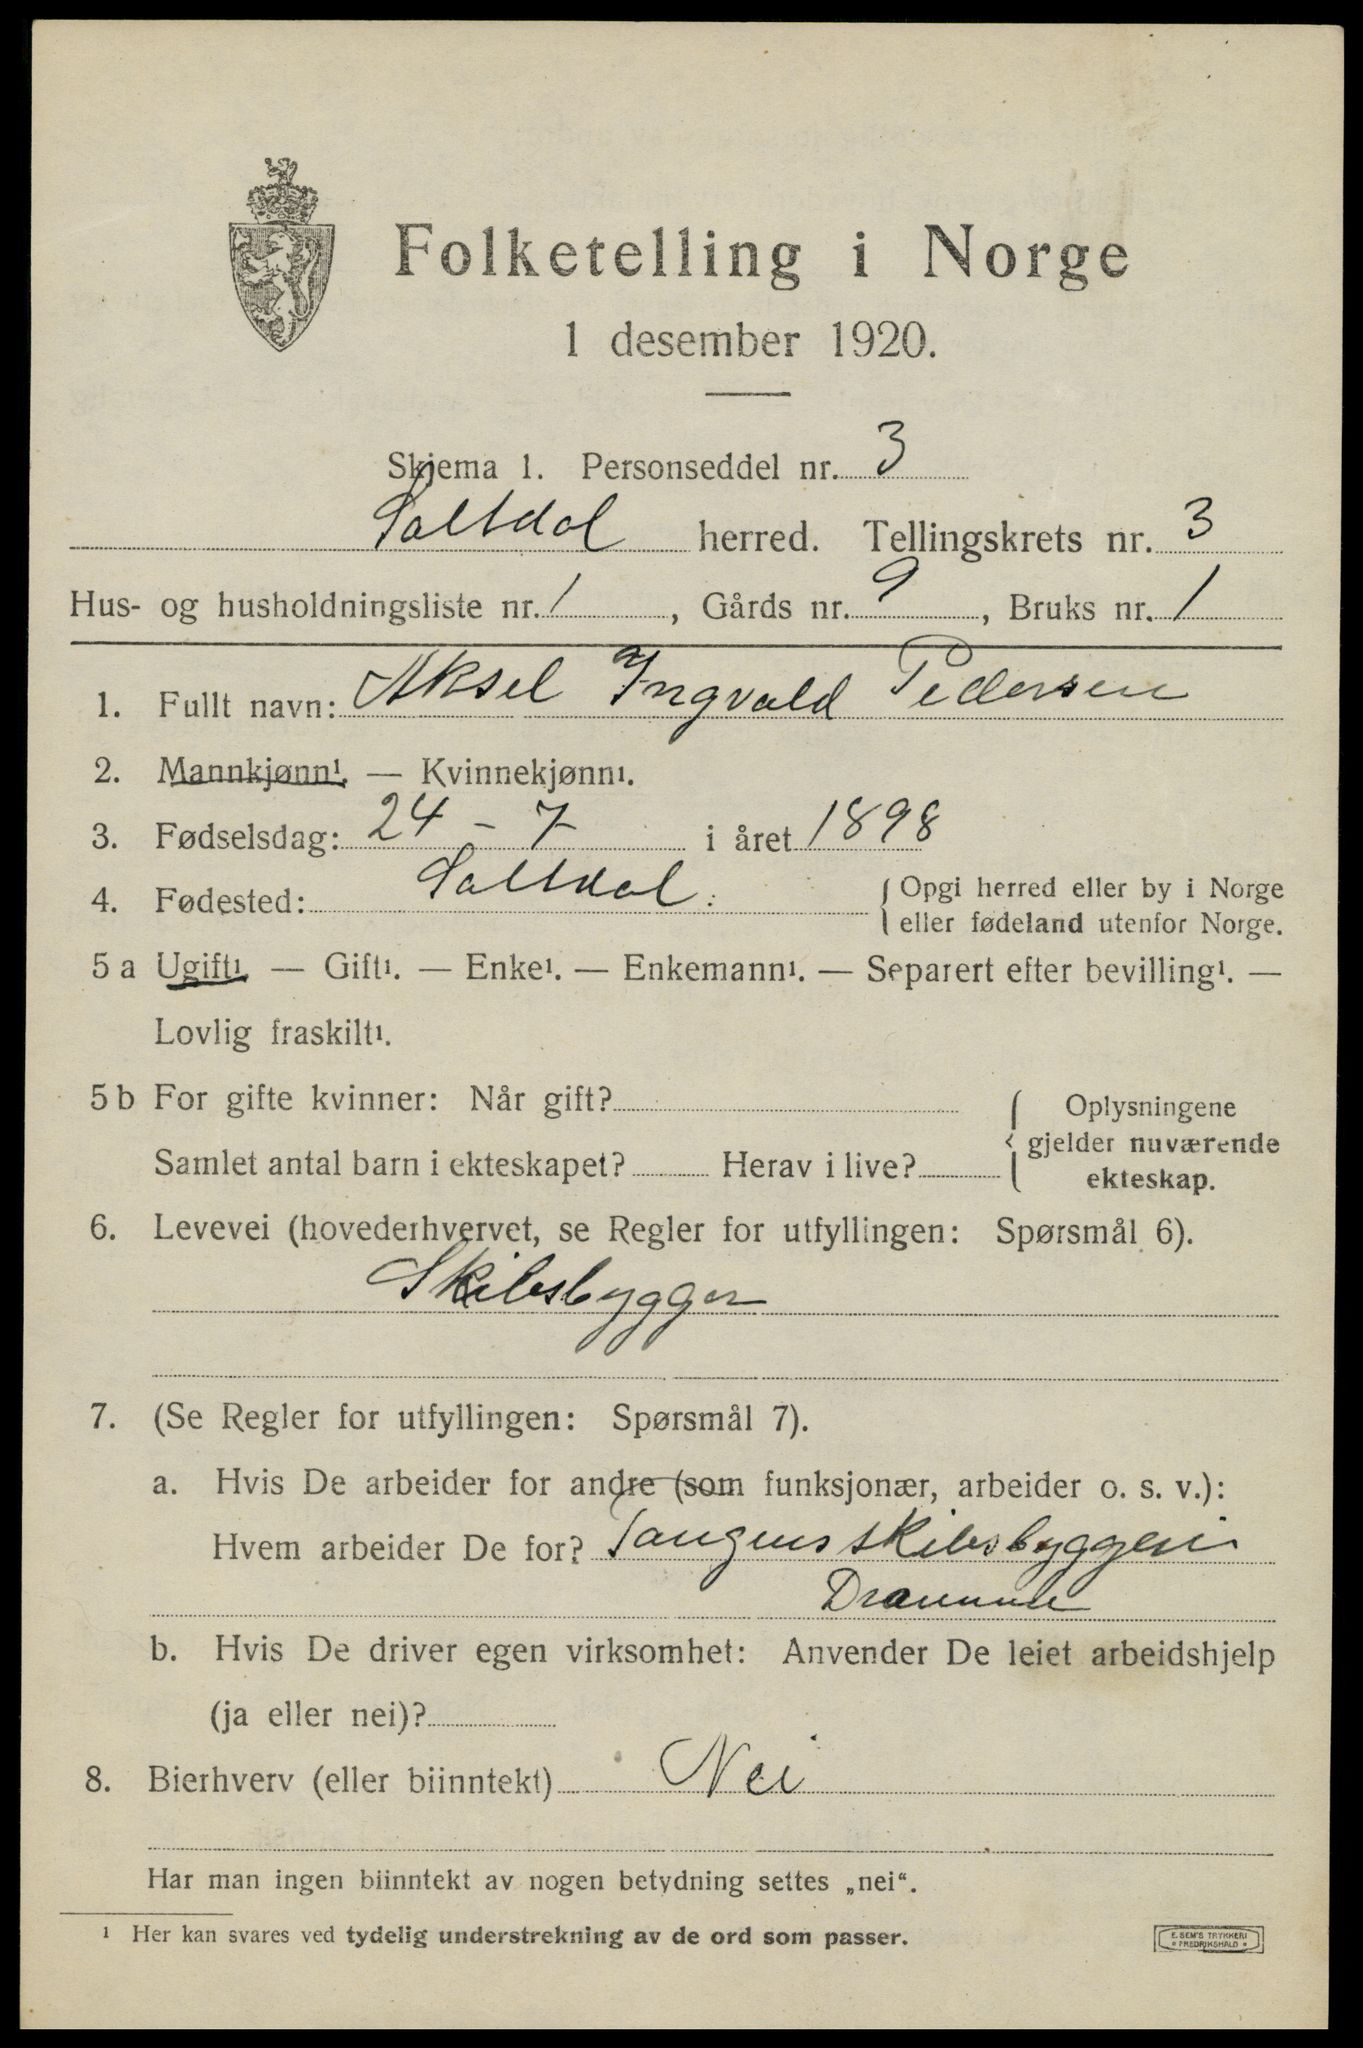 Folketelling i Norge
1 desember 1920.
Skjema 1. Personseddel nr. 3
Saltdal herred. Tellingskrets nr. 3
Hus- og husholdningsliste nr. 1, Gårds nr. 9, Bruks nr. 1
1. Fullt navn: Aksel Ingvald Pedersen
2. Mannkjønn¹. — Kvinnekjønn¹.
3. Fødselsdag: 24 - 7 i året 1898
4. Fødested: Saltdal. { Opgi herred eller by i Norge
eller fødeland utenfor Norge.
5 a Ugift¹. — Gift¹. — Enke¹. — Enkemann¹. — Separert efter bevilling¹. —
Lovlig fraskilt¹.
5 b For gifte kvinner: Når gift?
Samlet antal barn i ekteskapet? Herav i live?
Oplysningene
gjelder nuværende
ekteskap.
6. Levevei (hovederhvervet, se Regler for utfyllingen: Spørsmål 6).
Skibsbygger
7. (Se Regler for utfyllingen: Spørsmål 7).
a. Hvis De arbeider for andre (som funksjonær, arbeider o. s. v.):
Hvem arbeider De for? Tangens skibsbyggeri
Drammen
b. Hvis De driver egen virksomhet: Anvender De leiet arbeidshjelp
(ja eller nei)?
8. Bierhverv (eller biinntekt) Nei
Har man ingen biinntekt av nogen betydning settes „nei“.
¹ Her kan svares ved tydelig understrekning av de ord som passer.
E. SEM'S TRYKKERI
• FREDRIKSHALD •